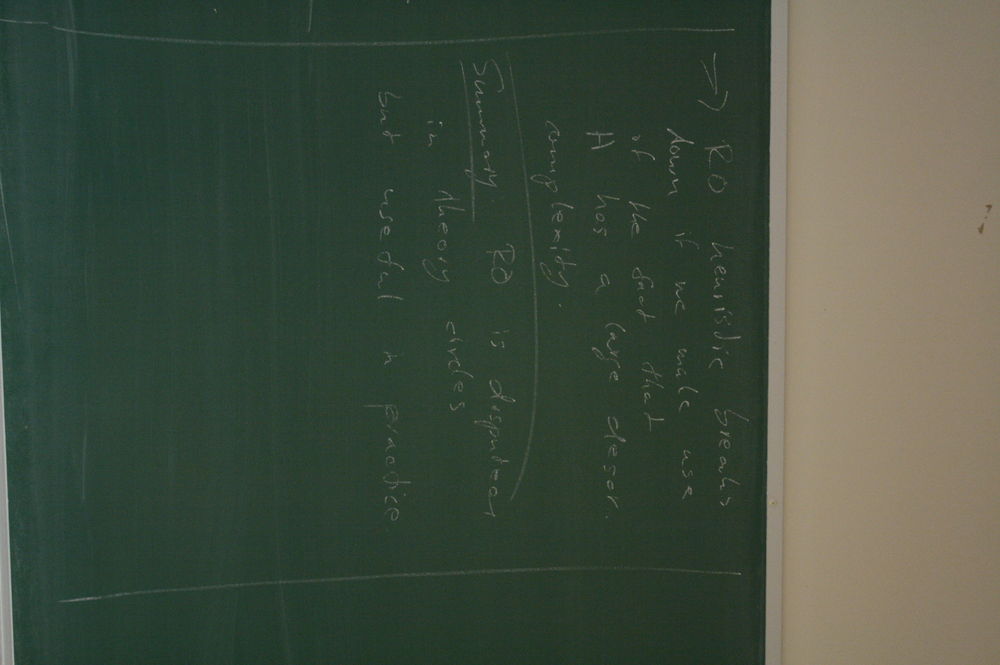 → RO heuristic breaks
down if we make use
of the fact that
H has a large descr.
complexity.
Summary: RO is disputed
in theory circles
but useful in practice.